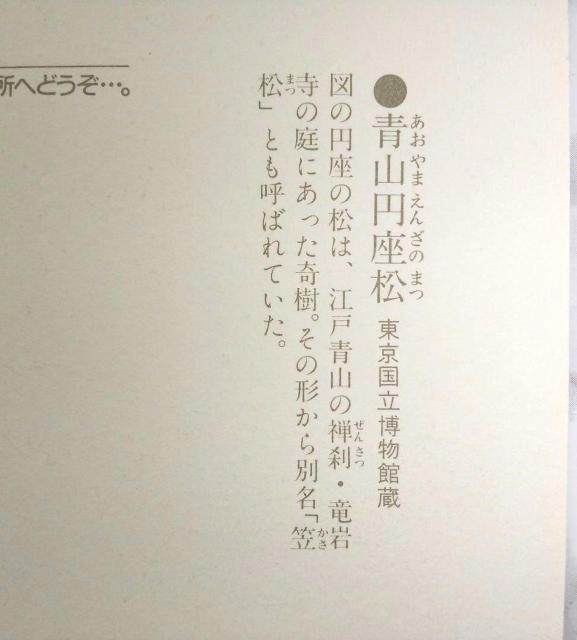 ●青山円座松 東京国立博物館蔵
あおやまえんざのまつ
図の円座の松は、江戸青山の禅刹・竜岩
ぜんさつ
寺の庭にあった奇樹。その形から別名「笠
かさ
松」とも呼ばれていた。
まつ
所へどうぞ…。